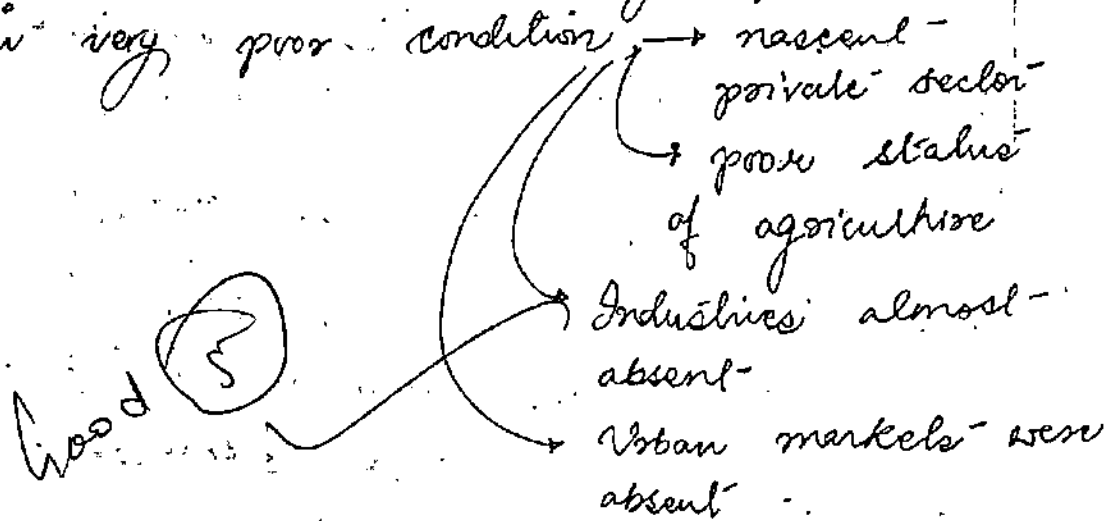 very poor condition → nascent
private sector
→ poor status
of agriculture
→ Industries almost
absent
→ Urban markets were
absent
Good